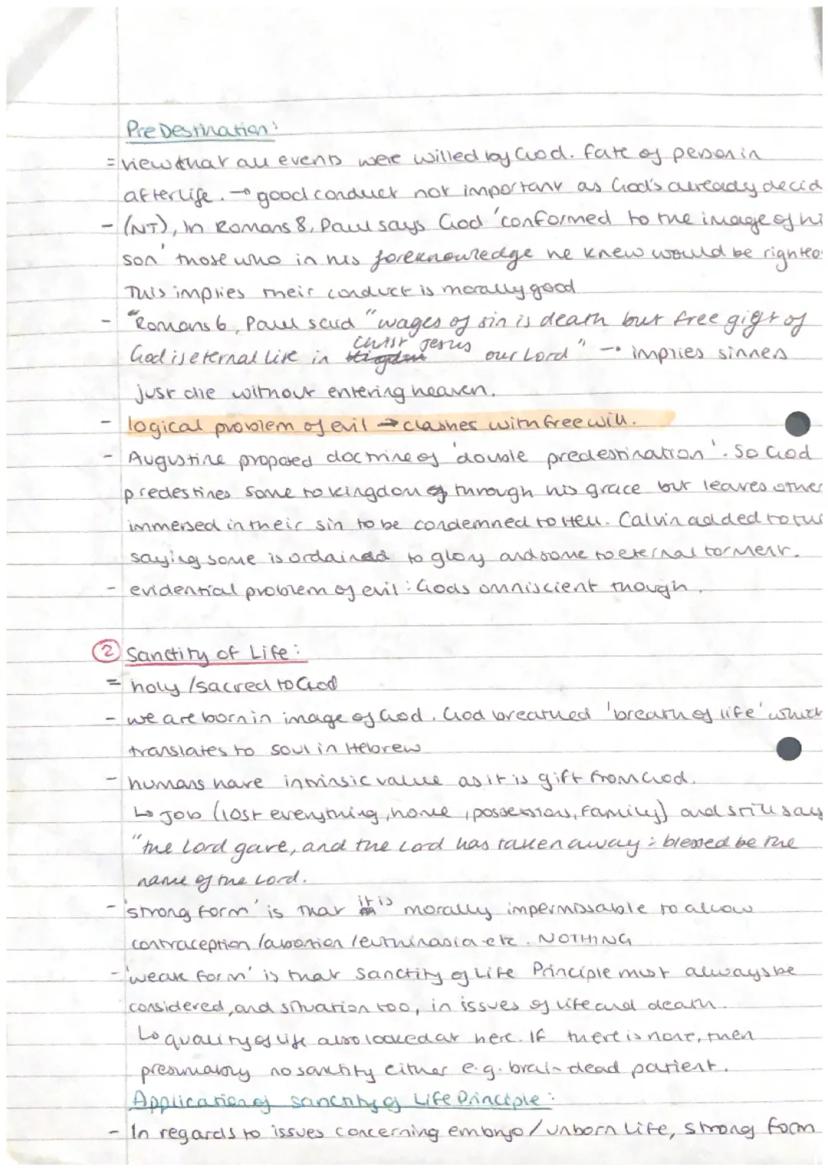 PreDestination:
= view that all events were willed by God. Fate of person in
afterlife. → good conduct not important as God's already decid
- (NT), In Romans 8, Paul says God 'conformed to the image of hi
son' those who in his foreknowledge he knew would be righteo
This implies their conduct is morally good
- Romans 6, Paul said "wages of sin is death but free gift of
God is eternal life in Christ Jesus our Lord" → implies sinners
just die without entering heaven.
- logical problem of evil → clashes with free will.
- Augustine proposed doctrine of 'double predestination'. So God
predestines some to kingdom of through his grace but leaves other
immersed in their sin to be condemned to Hell. Calvin added to this
saying some is ordained to glory and some to eternal torment.
- evidential problem of evil: Gods omniscient though.
② Sanctity of Life:
= holy/sacred to God
- we are born in image of God. God breathed 'breath of life' which
translates to soul in Hebrew
- humans have intrinsic value as it is gift from God.
↳ Job (lost everything, home, possessions, family) and still say
"the Lord gave, and the Lord has taken away: blessed be the
name of the Lord.
- 'strong form' is that it is morally impermissable to allow
contraception/abortion/euthinasia etc. NOTHING
- 'weak form' is that Sanctity of Life Principle must always be
considered, and situation too, in issues of life and death.
↳ quality of life also looked at here. If there is none, then
presumably no sanctity either e.g. brain-dead patient.
Application of Sanctity of Life Principle:
- In regards to issues concerning embryo/unborn life, strong form